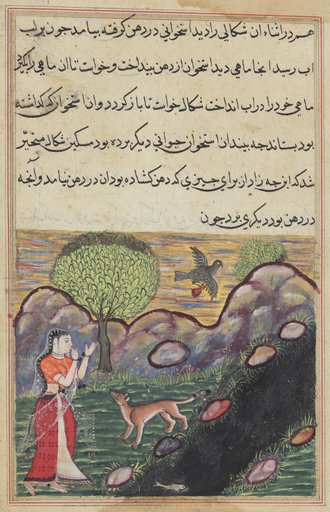 هم در اثناء آن شکالی را دید استخوانی در دهن کرفته بیامد چون بر لب
آب رسید آنجا ماهی دید استخوان از دهن بینداخت و خواست تا آن ماهی را بکیرد
ماهی خود را در آب انداخت شکال خواست تا باز کردد و آن استخوان که کذاشته
بود بستاند چه بیند آن استخوان حیوانی دیکر برده بود مسکین شکال متحیر
شد که از چه را از برای چیزی که دهن کشاده بود آن در دهن نیامد و آنچه
در دهن بود دیکری برد چون